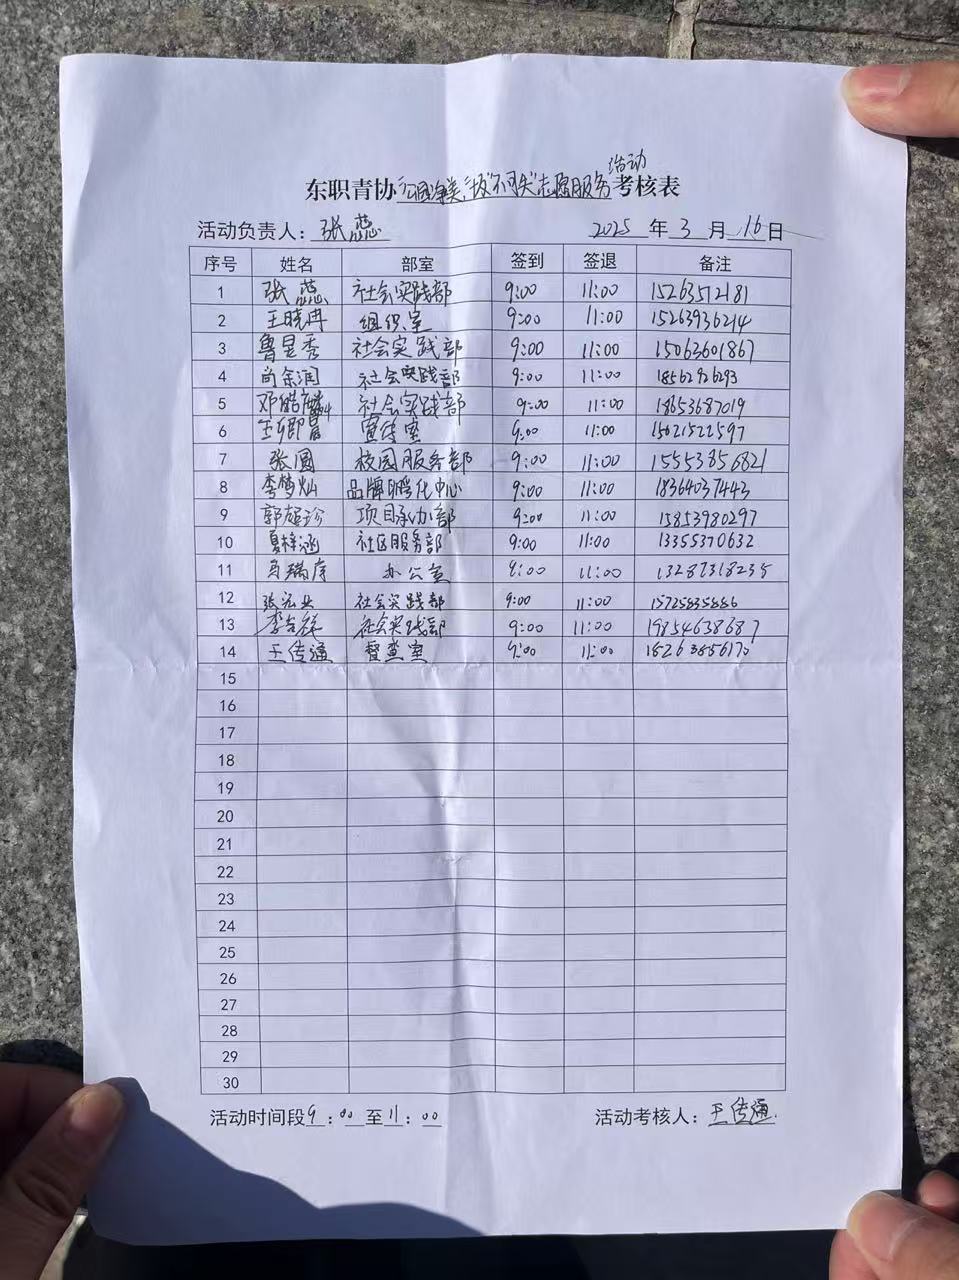 东职青协"公园净美,垃圾不可失"志愿服务活动考核表
活动负责人：张蕊 2025年3月16日
序号 姓名 部室 签到 签退 备注
1 张蕊 社会实践部 9:00 11:00 15263512181
2 王晓冉 组织室 9:00 11:00 15263936214
3 鲁昱秀 社会实践部 9:00 11:00 15063601867
4 尚余润 社会实践部 9:00 11:00 18562926293
5 邓皓麟 社会实践部 9:00 11:00 18653687019
6 宣传室 9:00 11:00 15621522597
7 张圆 校园服务部 9:00 11:00 15553856821
8 李梦灿 品牌孵化中心 9:00 11:00 18364037443
9 郭超珍 项目承办部 9:00 11:00 15853980297
10 夏梓涵 社区服务部 9:00 11:00 13355370632
11 瑞 办公室 9:00 11:00 13287318235
12 张宏业 社会实践部 9:00 11:00 15725835886
13 李吉祥 社会实践部 9:00 11:00 19854638687
14 王传通 督查室 9:00 11:00 18263856170
15
16
17
18
19
20
21
22
23
24
25
26
27
28
29
30
活动时间段9:00至11:00 活动考核人：王传通